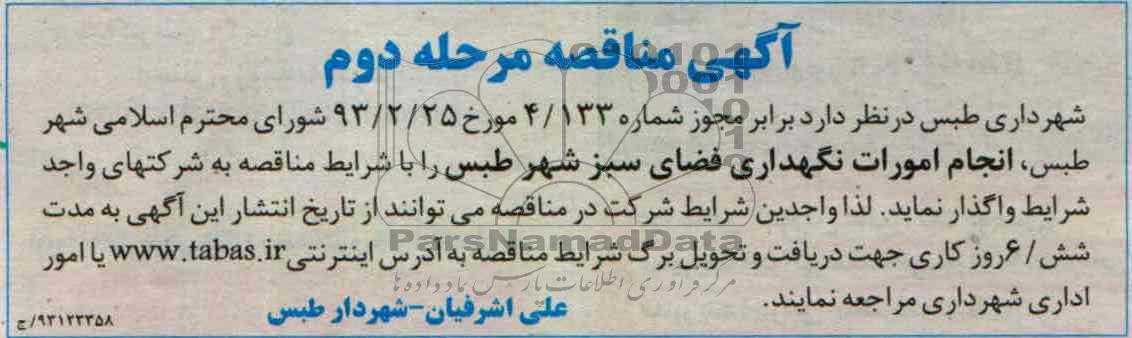 آگهی مناقصه مرحله دوم
شهرداری طبس درنظر دارد برابر مجوز شماره ۴/۱۳۳ مورخ ۹۳/۲/۲۵ شورای محترم اسلامی شهر
طبس، انجام امورات نگهداری فضای سبز شهر طبس را با شرایط مناقصه به شرکتهای واجد
شرایط واگذار نماید. لذا واجدین شرایط شرکت در مناقصه می توانند از تاریخ انتشار این آگهی به مدت
شش/۶روز کاری جهت دریافت و تحویل برگ شرایط مناقصه به آدرس اینترنتی www.tabas.ir یا امور
اداری شهرداری مراجعه نمایند.
علی اشرفیان-شهردار طبس
۹۳۱۲۳۳۵۸/ج
ParsNamadData
مرکز فرآوری اطلاعات پارس نماد داده ها